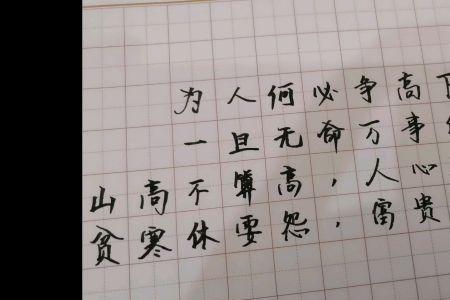 为人何必争高
一旦无命万事
山高不算高，人心
贫寒休要怨，富贵